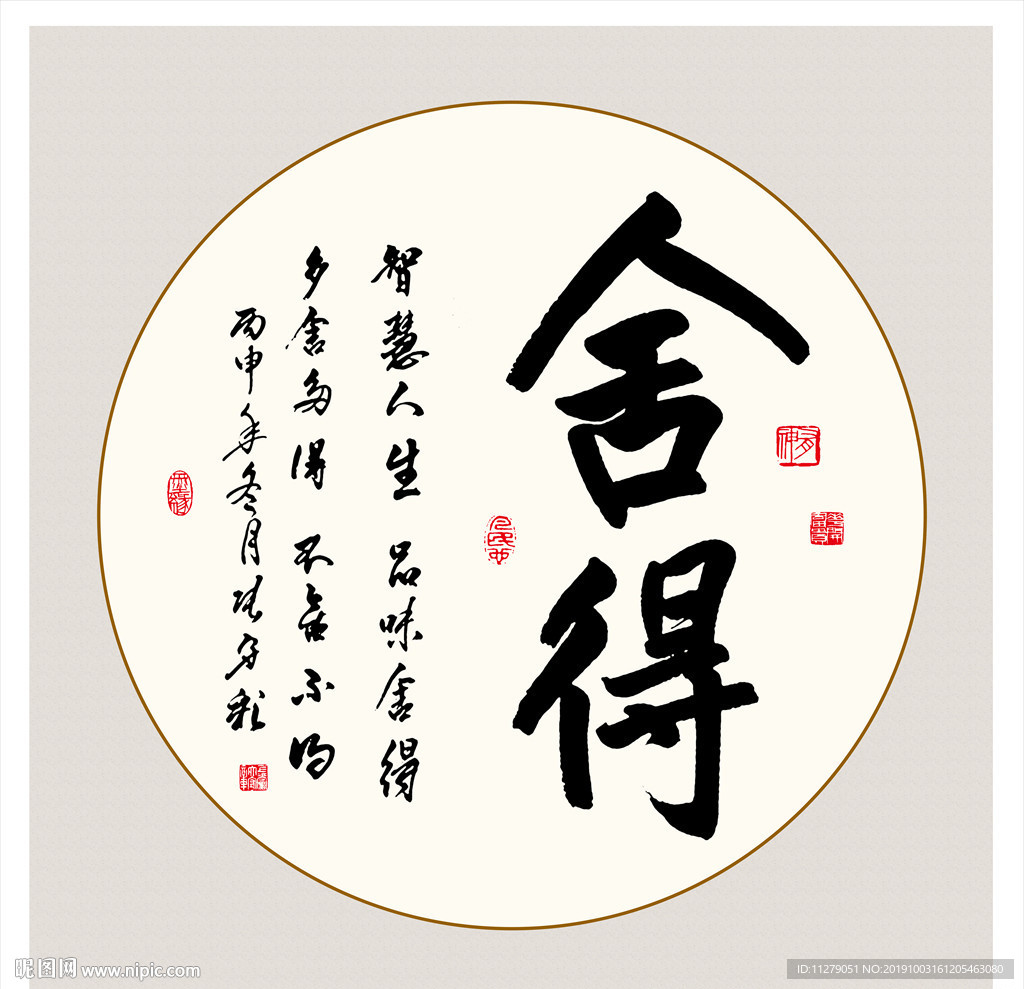 舍得
智慧人生 品味舍得
多舍多得 不舍不得
丙申年冬月
昵图网 www.nipic.com
ID:11279051 NO:20191003161205463080